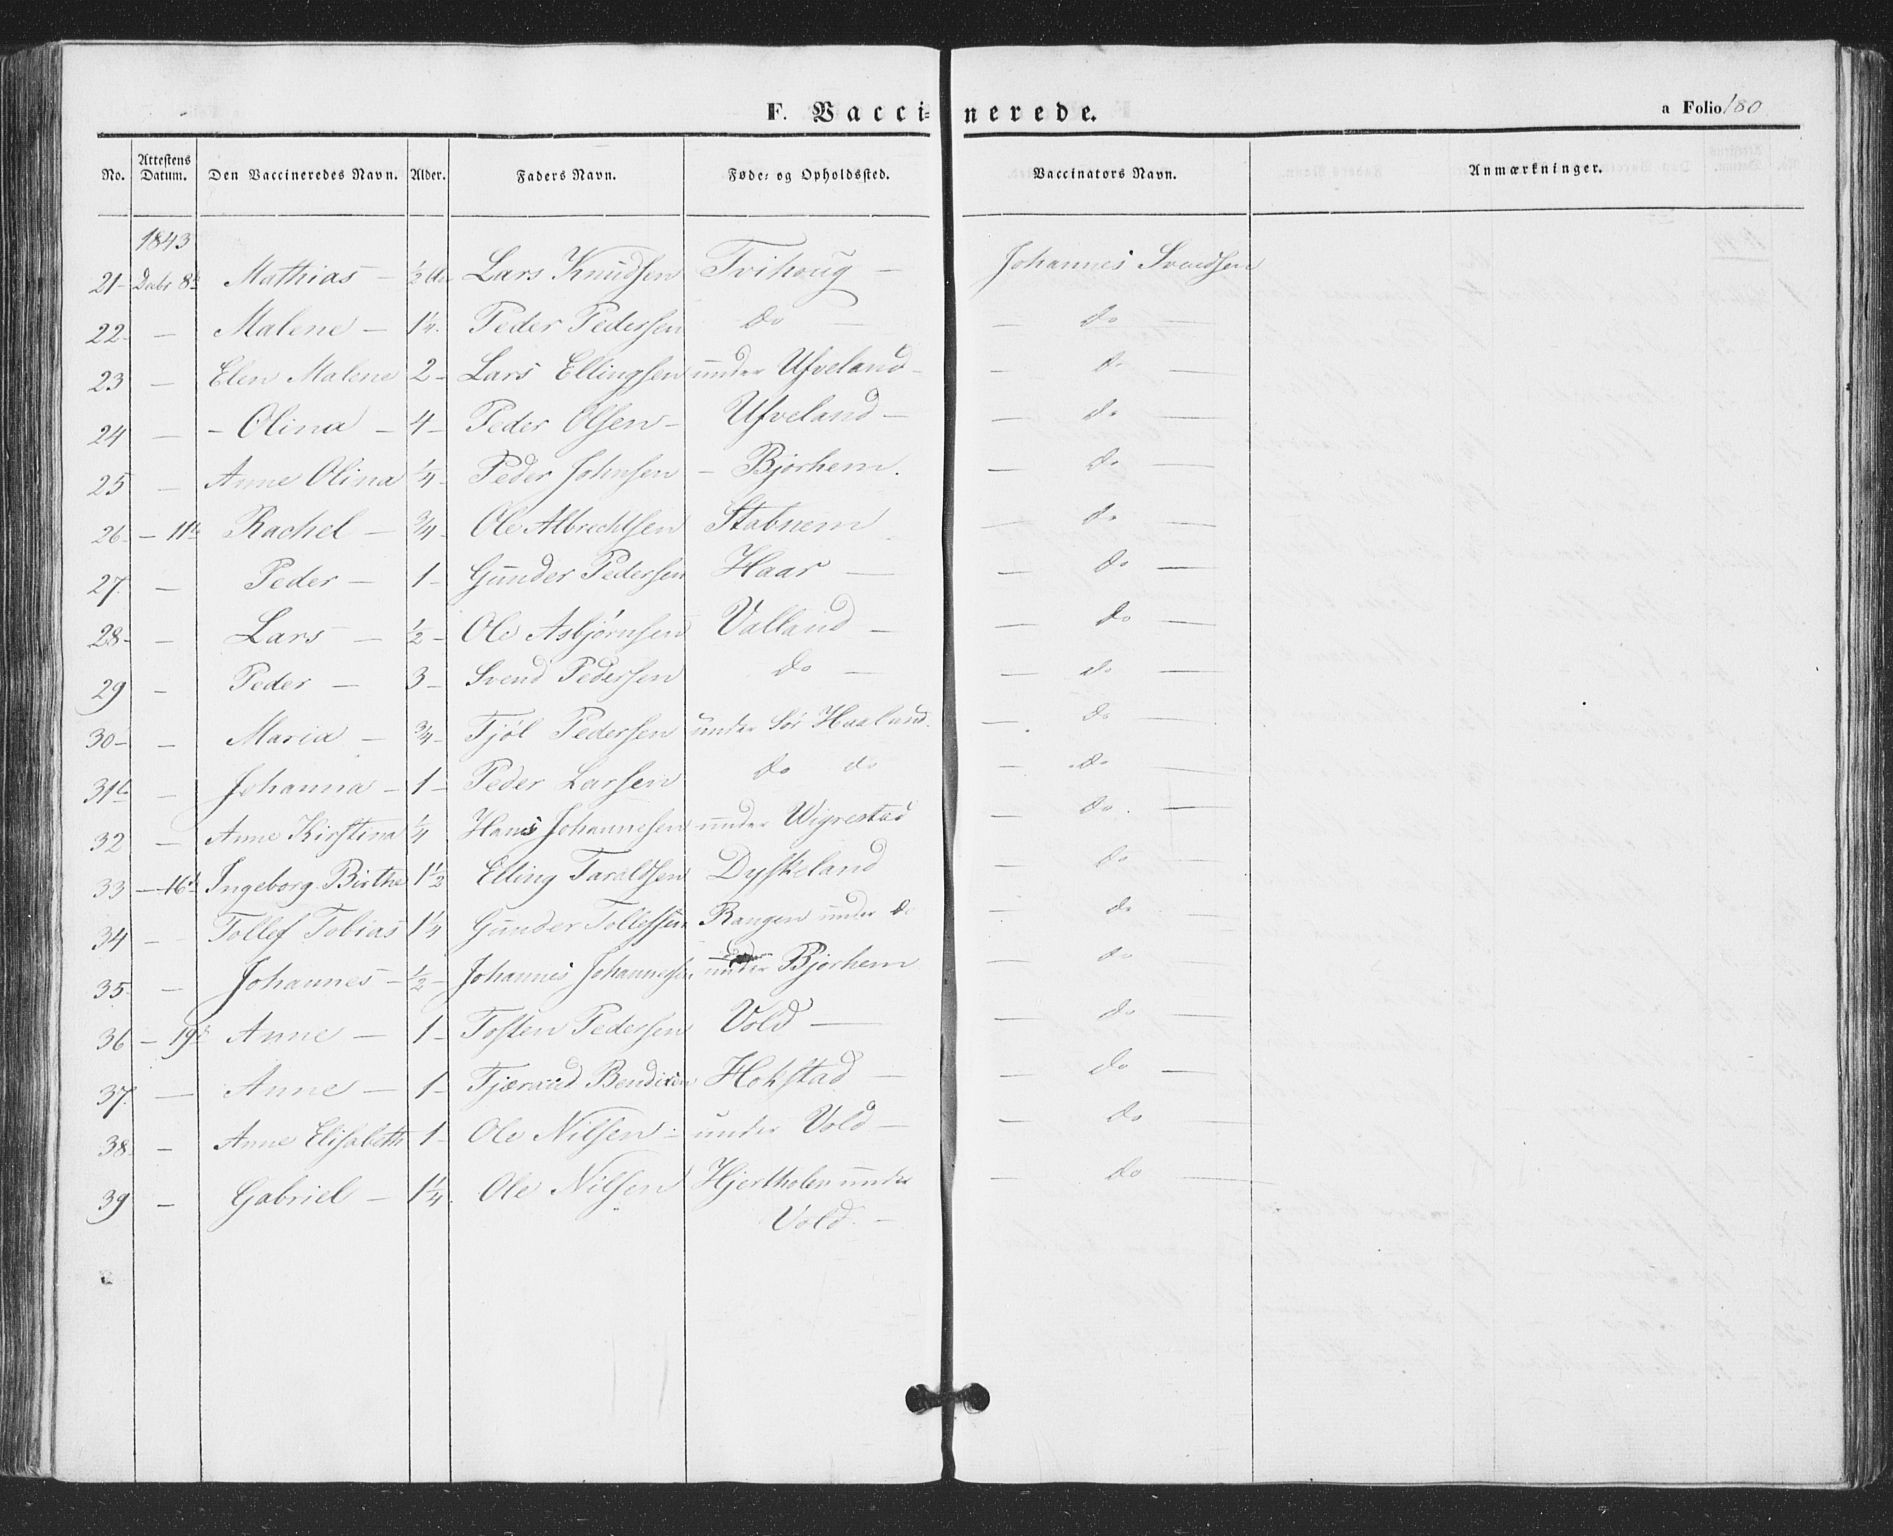 F. Vaccinerede.
a Folio 180
No. Attestens Datum. Den Vaccineredes Navn. Alder. Faders Navn. Føde- og Opholdssted. Vaccinators Navn. Anmærkninger.
1843
21- Decbr 8de Mathias - ½ Lars Knudsen Tvihoug - Johannes Svendsen
22- - Malene - 1¼. Peder Pedersen do - - do -
23 - Elen Malene 2- Lars Ellingsen under Ufveland - - do -
24 - - Olina - 4- Peder Olsen - Ufveland - - do -
25 - Anne Olina ¼- Peder Johnsen - Bjorhem. - do -
26- - 11te Rachel - ¾- Ole Albrechtsen Stabnem - do -
27. - Peder - 1- Gunder Pedersen Haar - - do -
28- - Lars - ½- Ole Asbjørnsen Valland - - do -
29 - Peder - 3- Svend Pedersen do - - do -
30- - Maria - ¾- Tjøl Pedersen under Sør Haaland. - do -
31te - Johanna - 1- Peder Larsen do do - do -
32 - Anne Kirstina ¼ Hans Johannesen under Wigrestad - do. -
33 - 16de Ingeborg Birthe 1½ Elling Taraldsen Dyskeland - do -
34 - Tollef Tobias 1¼ Gunder Tollefsen Rangen under do - do -
35- - Johannes - ½- Johannes Johannesen under Bjorhem - do -
36 - 19de Anne - 1- Tosten Pedersen Vold - - do -
37. - Anne - 1- Tjærand Bendixen Hokstad - - do -
38- - Anne Elisabeth 1- Ole Nilsen - under Vold - - do -
39 - Gabriel - 1¼. Ole Nilsen Hjertholen under - do -
Vold. -